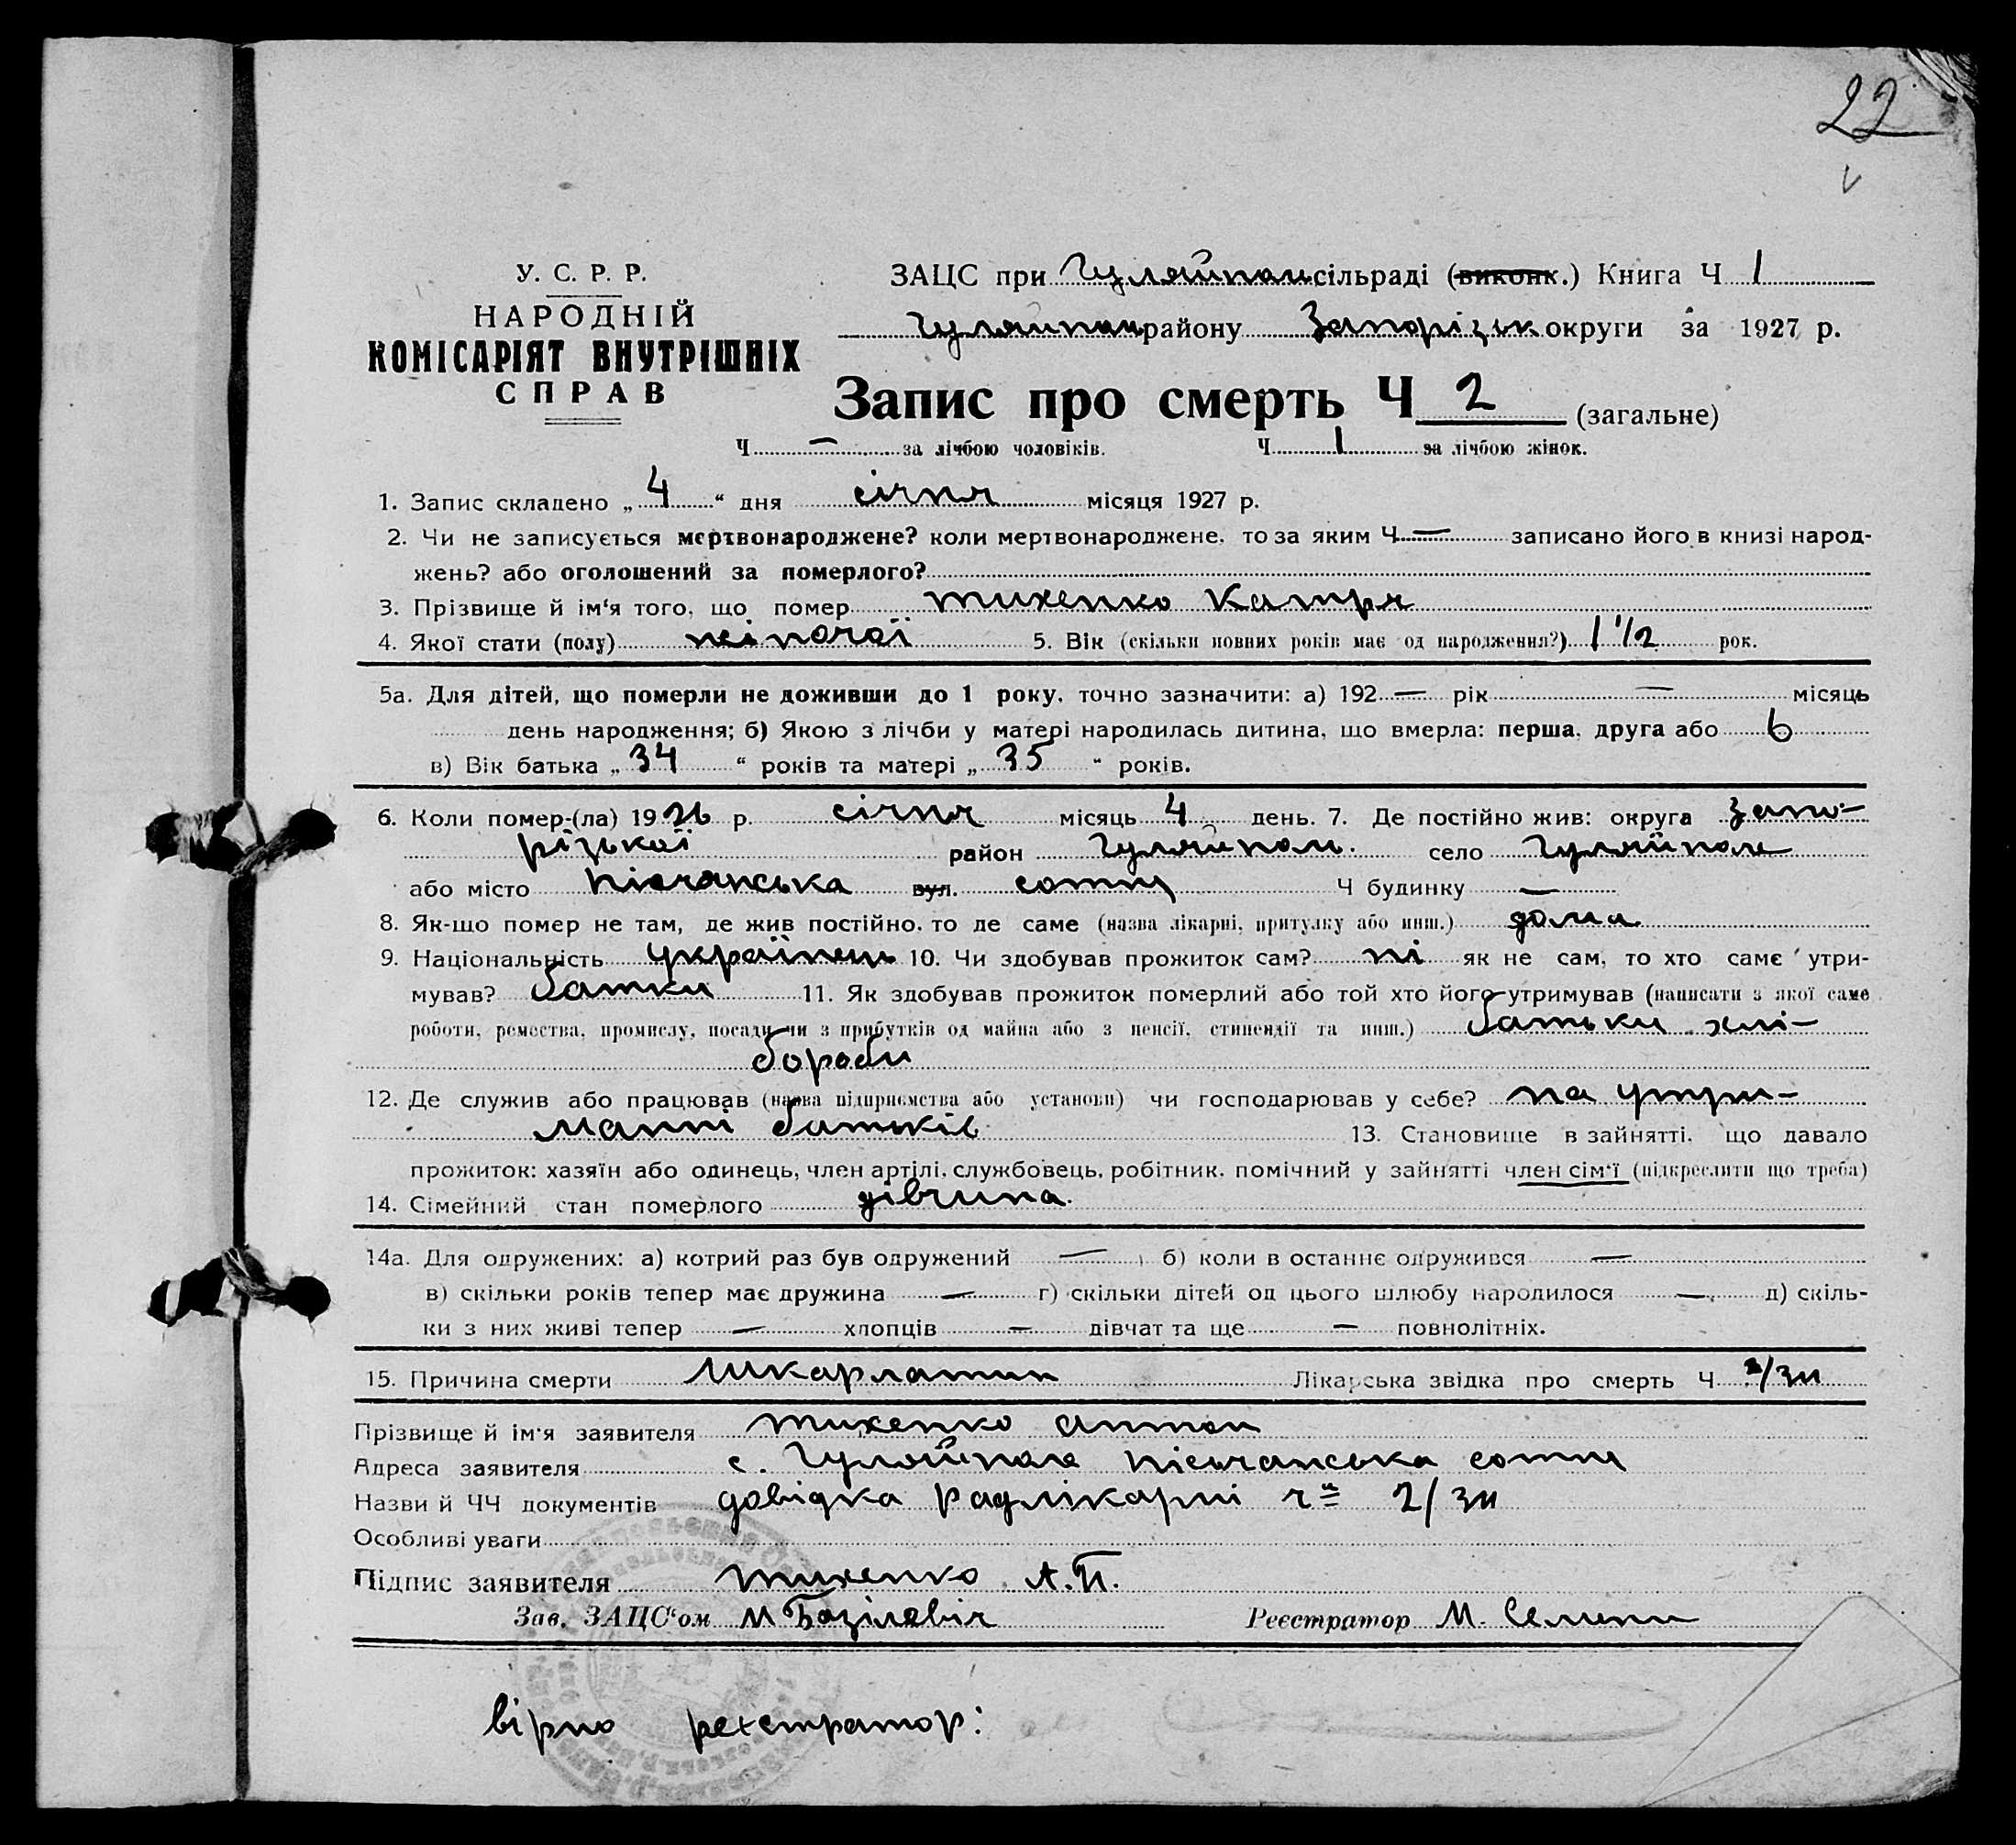 22
У. С. Р. Р.
НАРОДНІЙ
КОМІСАРІЯТ ВНУТРІШНІХ
СПРАВ
ЗАЦС при Гуляйпол сільраді (виконк.) Книга Ч 1
Гуляйпол району Запорізьк округи за 1927 р.
Запис про смерть Ч 2 (загальне)
Ч — за лічбою чоловіків. Ч 1 за лічбою жінок.
1. Запис складено „ 4 “ дня січня місяця 1927 р.
2. Чи не записується мертвонароджене? коли мертвонароджене, то за яким Ч — записано його в книзі народ-
жень? або оголошений за померлого?
3. Прізвище й ім‘я того, що помер Тихенко Катря
4. Якої стати (полу) жіночої 5. Вік (скільки повних років має од народження?) 1 1/2 рок.
5а. Для дітей, що померли не доживши до 1 року, точно зазначити: а) 192 — рік — місяць
день народження; б) Якою з лічби у матері народилась дитина, що вмерла: перша, друга або 6
в) Вік батька „ 34 “ років та матері „ 35 “ років.
6. Коли помер-(ла) 19 26 р. січня місяць 4 день. 7. Де постійно жив: округа Запо-
різької район Гуляйполь. село Гуляйполе
або місто Пісчанська вул. сотня Ч будинку —
8. Як-що помер не там, де жив постійно, то де саме (назва лікарні, притулку або инш.) дома
9. Національність українець 10. Чи здобував прожиток сам? ні як не сам, то хто саме утри-
мував? батки 11. Як здобував прожиток померлий або той хто його утримував (написати з якої саме
роботи, ремества, промислу, посади чи з прибутків од майна або з пенсії, стипендії та инш.) батьки хлі-
бороби
12. Де служив або працював (назва підприємства або установи) чи господарював у себе? на утри-
манні батьків 13. Становище в зайнятті, що давало
прожиток: хазяїн або одинець, член артілі, службовець, робітник, помічний у зайнятті член сім‘ї (підкреслити що треба)
14. Сімейний стан померлого дівчина.
14а. Для одружених: а) котрий раз був одружений — б) коли в останнє одружився —
в) скільки років тепер має дружина — г) скільки дітей од цього шлюбу народилося — д) скіль-
ки з них живі тепер — хлопців — дівчат та ще — повнолітніх.
15. Причина смерти Шкарлатин Лікарська звідка про смерть Ч 2/зи
Прізвище й ім‘я заявителя Тихенко Антон
Адреса заявителя с. Гуляйполе Пісьчанська сотня
Назви й ЧЧ документів довідка Радлікарні 2/зи
Особливі уваги
Підпис заявителя Тихенко А.П.
Зав. ЗАЦС‘ом М Базілевіч Реєстратор М.
вірно реєстратор: